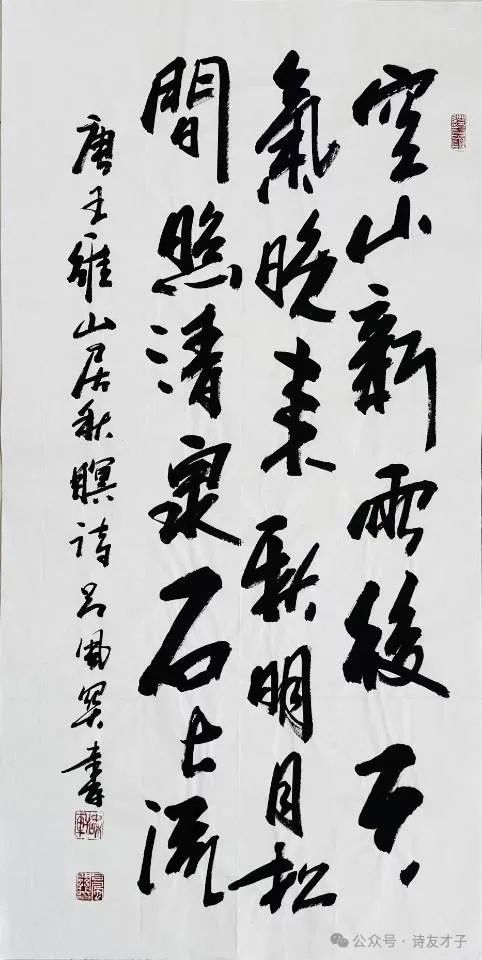 空山新雨後天
氣晚来秋明月松
間照清泉石上流
唐王維山居秋暝詩吕書
公众号 · 诗友才子